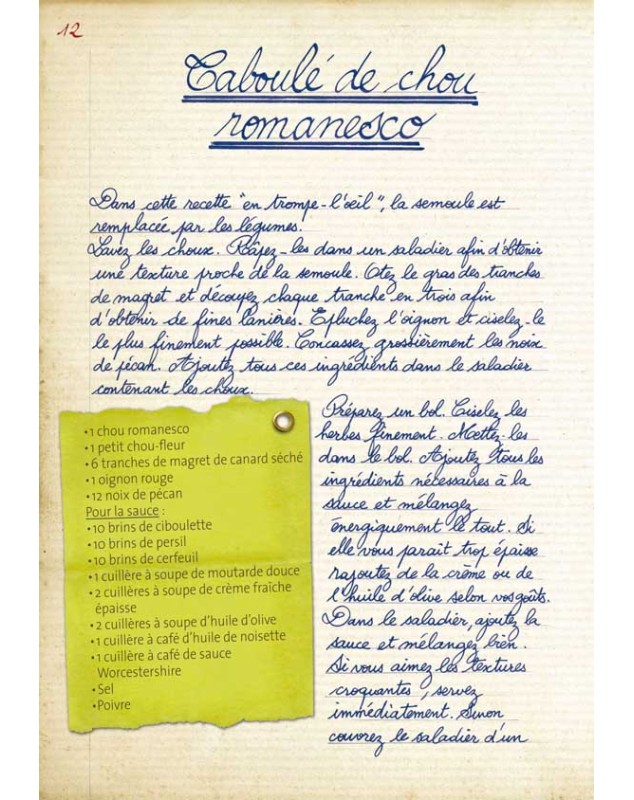 12
Taboulé de chou
romanesco
Dans cette recette "en trompe-l'œil", la semoule est
remplacée par les légumes.
Lavez les choux. Râpez-les dans un saladier afin d'obtenir
une texture proche de la semoule. Otez le gras des tranches
de magret et découpez chaque tranche en trois afin
d'obtenir de fines lanières. Epluchez l'oignon et ciselez-le
le plus finement possible. Concassez grossièrement les noix
de pécan. Ajoutez tous ces ingrédients dans le saladier
contenant les choux.
•1 chou romanesco
•1 petit chou-fleur
•6 tranches de magret de canard séché
•1 oignon rouge
•12 noix de pécan
Pour la sauce :
•10 brins de ciboulette
•10 brins de persil
•10 brins de cerfeuil
•1 cuillère à soupe de moutarde douce
•2 cuillères à soupe de crème fraîche
épaisse
•2 cuillères à soupe d'huile d'olive
•1 cuillère à café d'huile de noisette
•1 cuillère à café de sauce
Worcestershire
•Sel
•Poivre
Préparez un bol. Ciselez les
herbes finement. Mettez-les
dans le bol. Ajoutez tous les
ingrédients nécessaires à la
sauce et mélangez
énergiquement le tout. Si
elle vous parait trop épaisse
rajoutez de la crème ou de
l'huile d'olive selon vos goûts.
Dans le saladier, ajoutez la
sauce et mélangez bien.
Si vous aimez les textures
croquantes, servez
immédiatement. Sinon
couvrez le saladier d'un